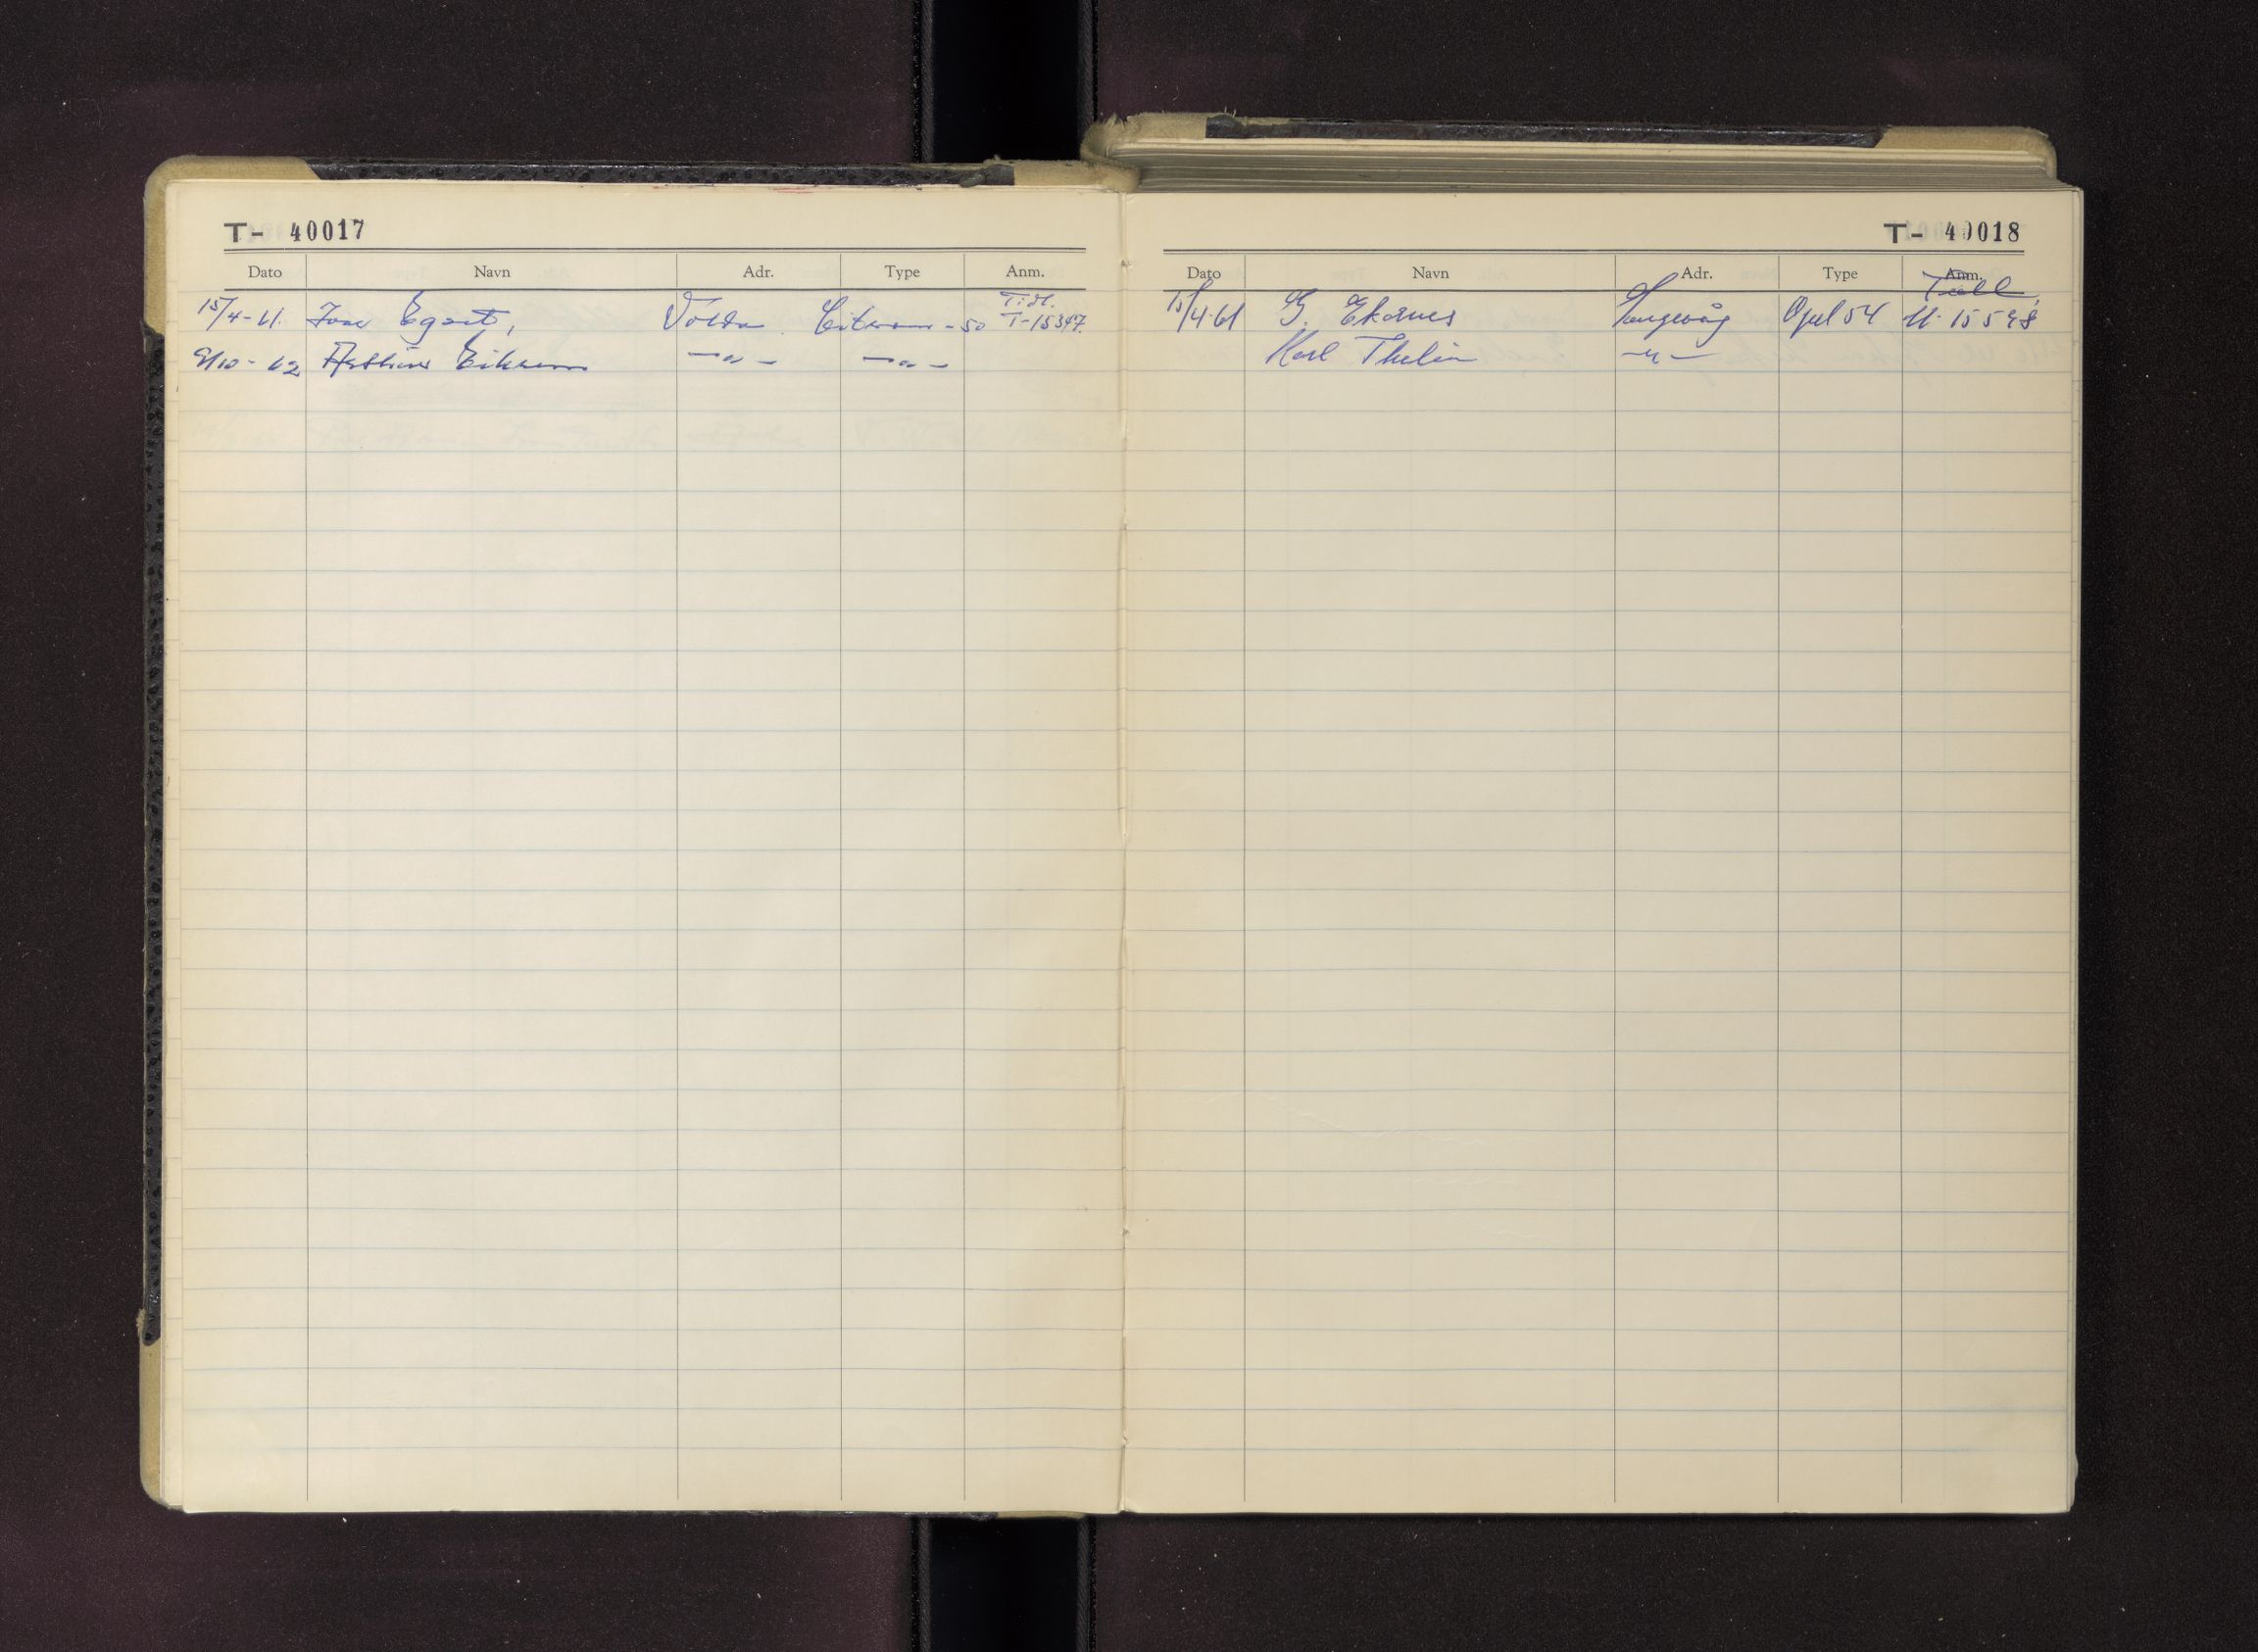 T- 40017
Dato Navn Adr. Type Anm.
Tidl.
15/4-61. Ivar Egset, Volda. Citroen - 50 T-15347.
9/10-62 Arthur Eiksem —"— —"—
T- 40018
Dato Navn Adr. Type Anm.
15/4-61 G. Ekornes Langevåg Opel 54 U-15598
Karl Thelin —"—